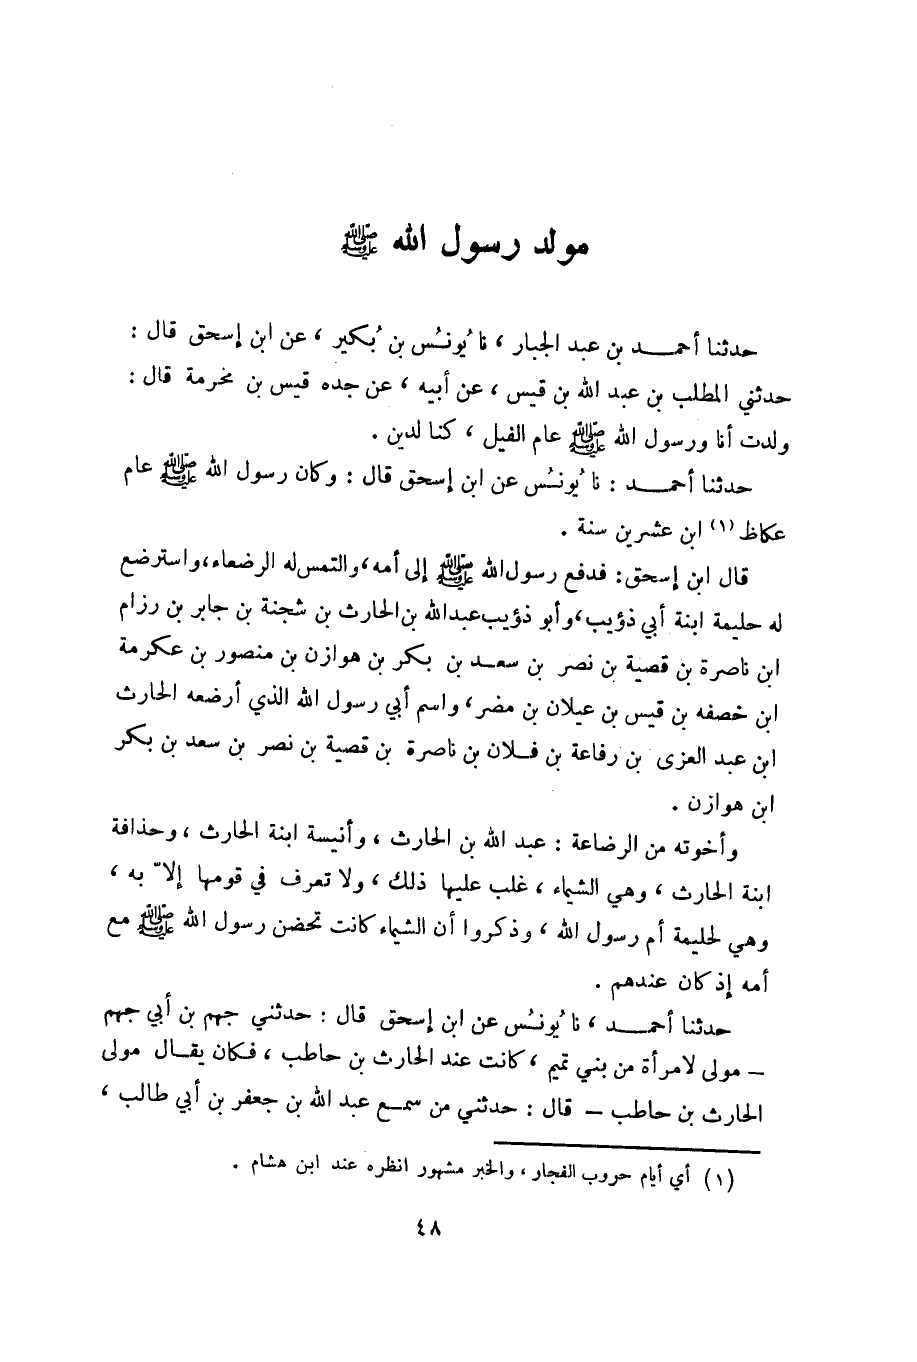 مولد رسول الله ﷺ
حدثنا أحمـــد بن عبد الجبار ، نا يُونـُس بن بُكير ، عن ابن إسحق قال :
حدثني المطلب بن عبد الله بن قيس ، عن أبيه ، عن جده قيس بن مخرمة قال :
ولدت أنا ورسول الله ﷺ عام الفيل ، كنا لدين .
حدثنا أحمـــد : نا يُونـُس عن ابن إسحق قال : وكان رسول الله ﷺ عام
عكاظ (١) ابن عشرين سنة .
قال ابن إسحق: فدفع رسول الله ﷺ إلى أمه ، والتمس له الرضعاء ، واسترضع
له حليمة ابنة أبي ذؤيب ، وأبو ذؤيب عبدالله بن الحارث بن شجنة بن جابر بن رزام
ابن ناصرة بن قصية بن نصر بن سعـد بن بكر بن هوازن بن منصور بن عكرمة
ابن خصفه بن قيس بن عيلان بن مضر ، واسم أبي رسول الله الذي أرضعه الحارث
ابن عبد العزى بن رفاعة بن فـلان بن ناصرة بن قصية بن نصر بن سعد بن بكر
ابن هوازن .
وأخوته من الرضاعة : عبد الله بن الحارث ، وأنيسة ابنة الحارث ، وحذافة
ابنة الحارث ، وهي الشيماء ، غلب عليها ذلك ، ولا تعرف في قومها إلاّ به ،
وهي لحليمة أم رسول الله ، وذكروا أن الشيماء كانت تحضن رسول الله ﷺ مع
أمه إذ كان عندهم .
حدثنا أحمـــد ، نا يُونـُس عن ابن إسحق قال : حدثني جهم بن أبي جهم
– مولى لامرأة من بني تميم ، كانت عند الحارث بن حاطب ، فكان يقـال مولى
الحارث بن حاطب – قال : حدثني من سمـع عبد الله بن جعفر بن أبي طالب ،
(١) أي أيام حروب الفجار ، والخبر مشهور انظره عند ابن هشام .
٤٨